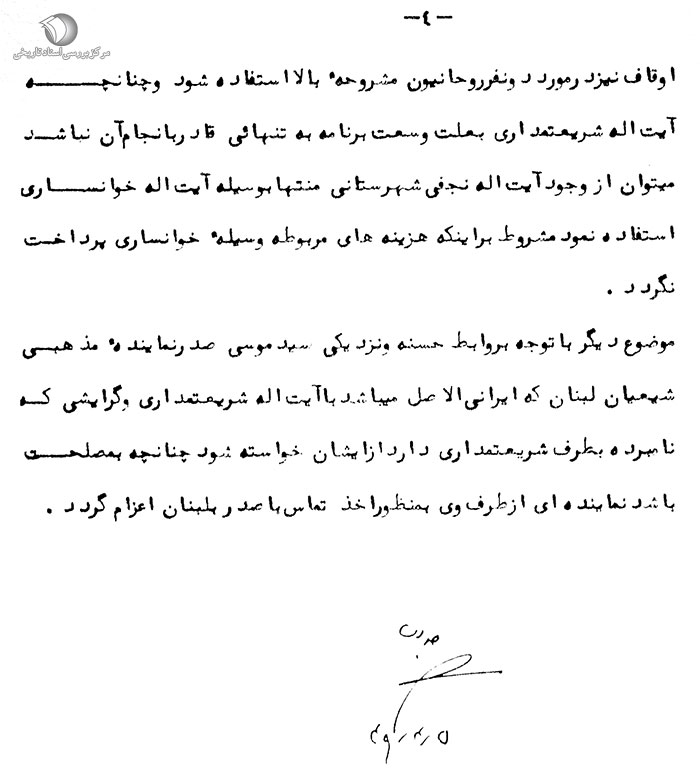 -٤-
مرکز بررسی اسناد تاریخی
اوقاف نیز در مورد دو نفر روحانیون مشروحه بالا استفاده شود وچنانچه
آیت اله شریعتمداری بعلت وسعت برنامه به تنهائی قادر بانجام آن نباشد
میتوان از وجود آیت اله نجفی شهرستانی منتها بوسیله آیت اله خوانساری
استفاده نمود مشروط براینکه هزینه های مربوطه وسیله خوانساری پرداخت
نگردد .
موضوع دیگر با توجه بروابط حسنه ونزدیکی سید موسی صدر نماینده مذهبی
شیعیان لبنان که ایرانی الاصل میباشد باآیت اله شریعتمداری وگرایشی که
نامبرده بطرف شریعتمداری دارد ازایشان خواسته شود چنانچه بمصلحت
باشد نماینده ای ازطرف وی بمنظور اخذ تماس با صدر بلبنان اعزام گردد .